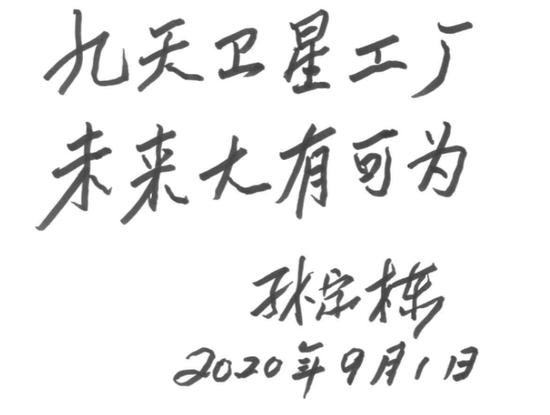 九天卫星工厂
未来大有可为
孙宗栋
2020年9月1日